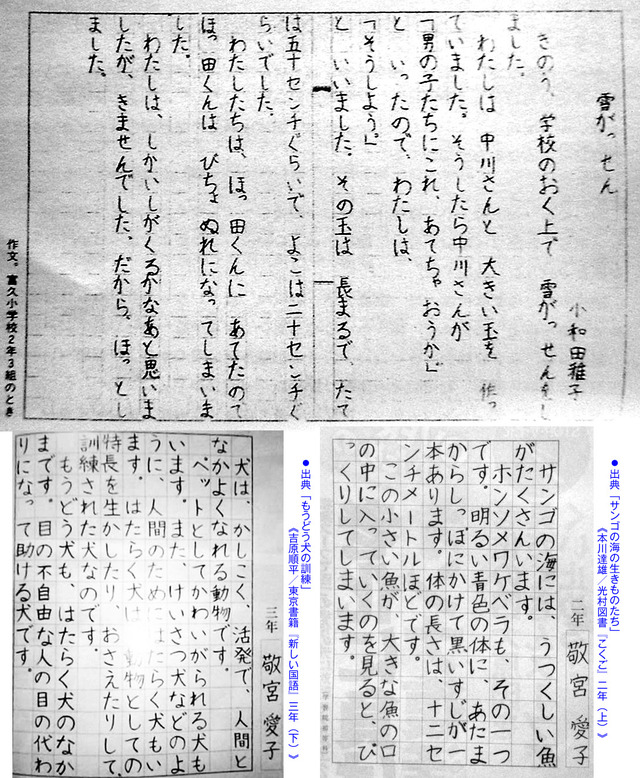 雪がっせん
小和田雅子
きのう、学校のおく上で　雪がっせんをし
ました。
わたしは　中川さんと　大きい玉を　作っ
ていました。そうしたら中川さんが
「男の子たちにこれ、あてちゃおうか」
と　いったので、わたしは、
「そうしよう。」
と　いいました。その玉は　長まるで、たて
は五十センチぐらいで、よこは二十センチぐ
らいでした。
わたしたちは、ほっ田くんに　あてたので
ほっ田くんは　びちょぬれになってしまいま
した。
わたしは、しかいしがくるかなあと思いま
したが、きませんでした。だから、ほっとし
ました。
作文。富久小学校2年3組のとき
●出典「サンゴの海の生きものたち」
《本川達雄／光村図書『こくご』二年（上）》
二年　敬宮　愛子
サンゴの海には、うつくしい魚
がたくさんいます。
ホンソメワケベラも、その一つ
です。明るい青色の体に、あたま
からしっぽにかけて黒いすじが一
本あります。体の長さは、十二セ
ンチメートルほどです。
この小さい魚が、大きな魚の口
の中に入っていくのを見ると、び
っくりしてしまいます。
●出典「もうどう犬の訓練」
《吉原順平／東京書籍『新しい国語』三年（下）》
三年　敬宮　愛子
犬は、かしこく、活発で、人間と
なかよくなれる動物です。
ペットとしてかわいがられる犬も
います。また、けいさつ犬などのよ
うに、人間のためにはたらく犬もい
ます。はたらく犬は、動物としての
特長を生かしたり、おさえたりして、
訓練された犬なのです。
もうどう犬も、はたらく犬のなか
まです。目の不自由な人の目の代わ
りになって助ける犬です。